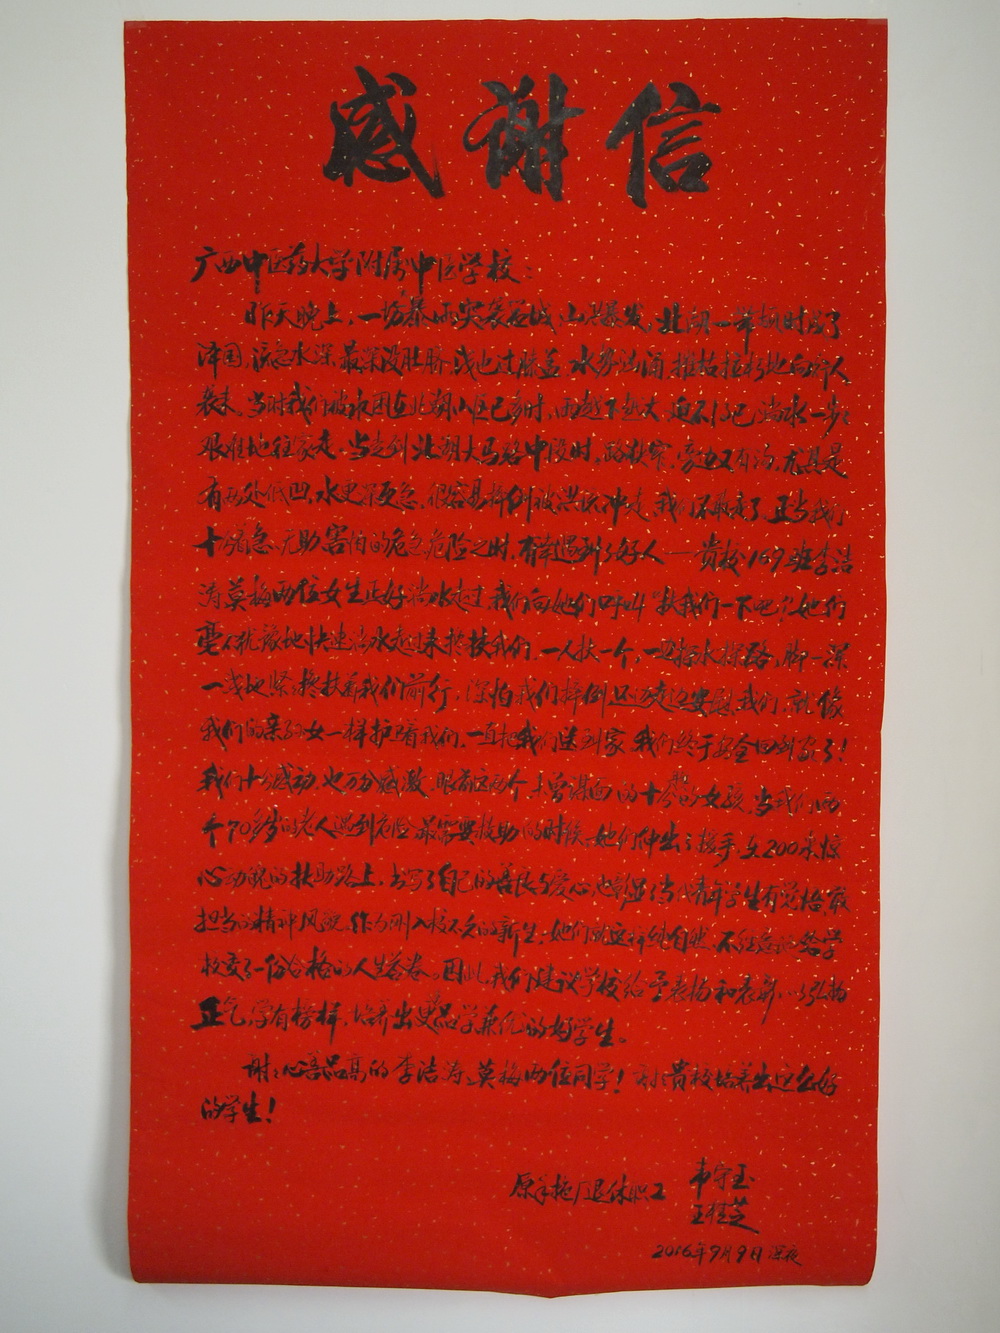 感谢信
广西中医药大学附属中医学校：
昨天晚上，一场暴雨突袭邕城，山洪暴发，北湖一带顿时成了
泽国，流急水深，最深没肚脐，浅也过膝盖，水势汹涌，摧枯拉朽地向行人
袭来。当时我们被雨困在北湖小区已多时，雨越下越大，迫不得已，淌水一步步
艰难地往家走。当走到北湖大马路中段时，路狭窄，旁边又有沟，尤其是
有两处低凹，水更深更急，很容易摔倒被洪流冲走，我们不敢走了，正当我们
十分焦急、无助、害怕的危急危险之时，有幸遇到了好人——贵校169班李洁
涛、莫梅两位女生正好淌水走过，我们向她们呼叫“扶我们一下吧！”她们
毫不犹豫地快速淌水走过来搀扶我们，一人扶一个，一边探水探路，脚一深
一浅地紧紧搀扶着我们前行，深怕我们摔倒，还边走边安慰我们，就像
我们的亲孙女一样护着我们，一直把我们送到家，我们终于安全回到家了！
我们十分感动，也万分感激，眼前这两个未曾谋面的十几岁的女孩，当我们两
个70多岁的老人遇到危险最需要救助的时候，她们伸出了援手，在200米惊
心动魄的扶助路上，书写了自己的善良与爱心，也彰显了当代青年学生有觉悟、敢
担当的精神风貌，作为刚入校不久的新生，她们就这样纯自然、不经意地给学
校交了一份合格的人生答卷。因此，我们建议学校给予表扬和表彰，以弘扬
正气，学有榜样，培养出更多品学兼优的好学生。
谢谢心善品高的李洁涛、莫梅两位同学！谢谢贵校培养出这么好
的学生！
原羊毡厂退休职工 韦守玉
王桂芝
2016年9月9日深夜